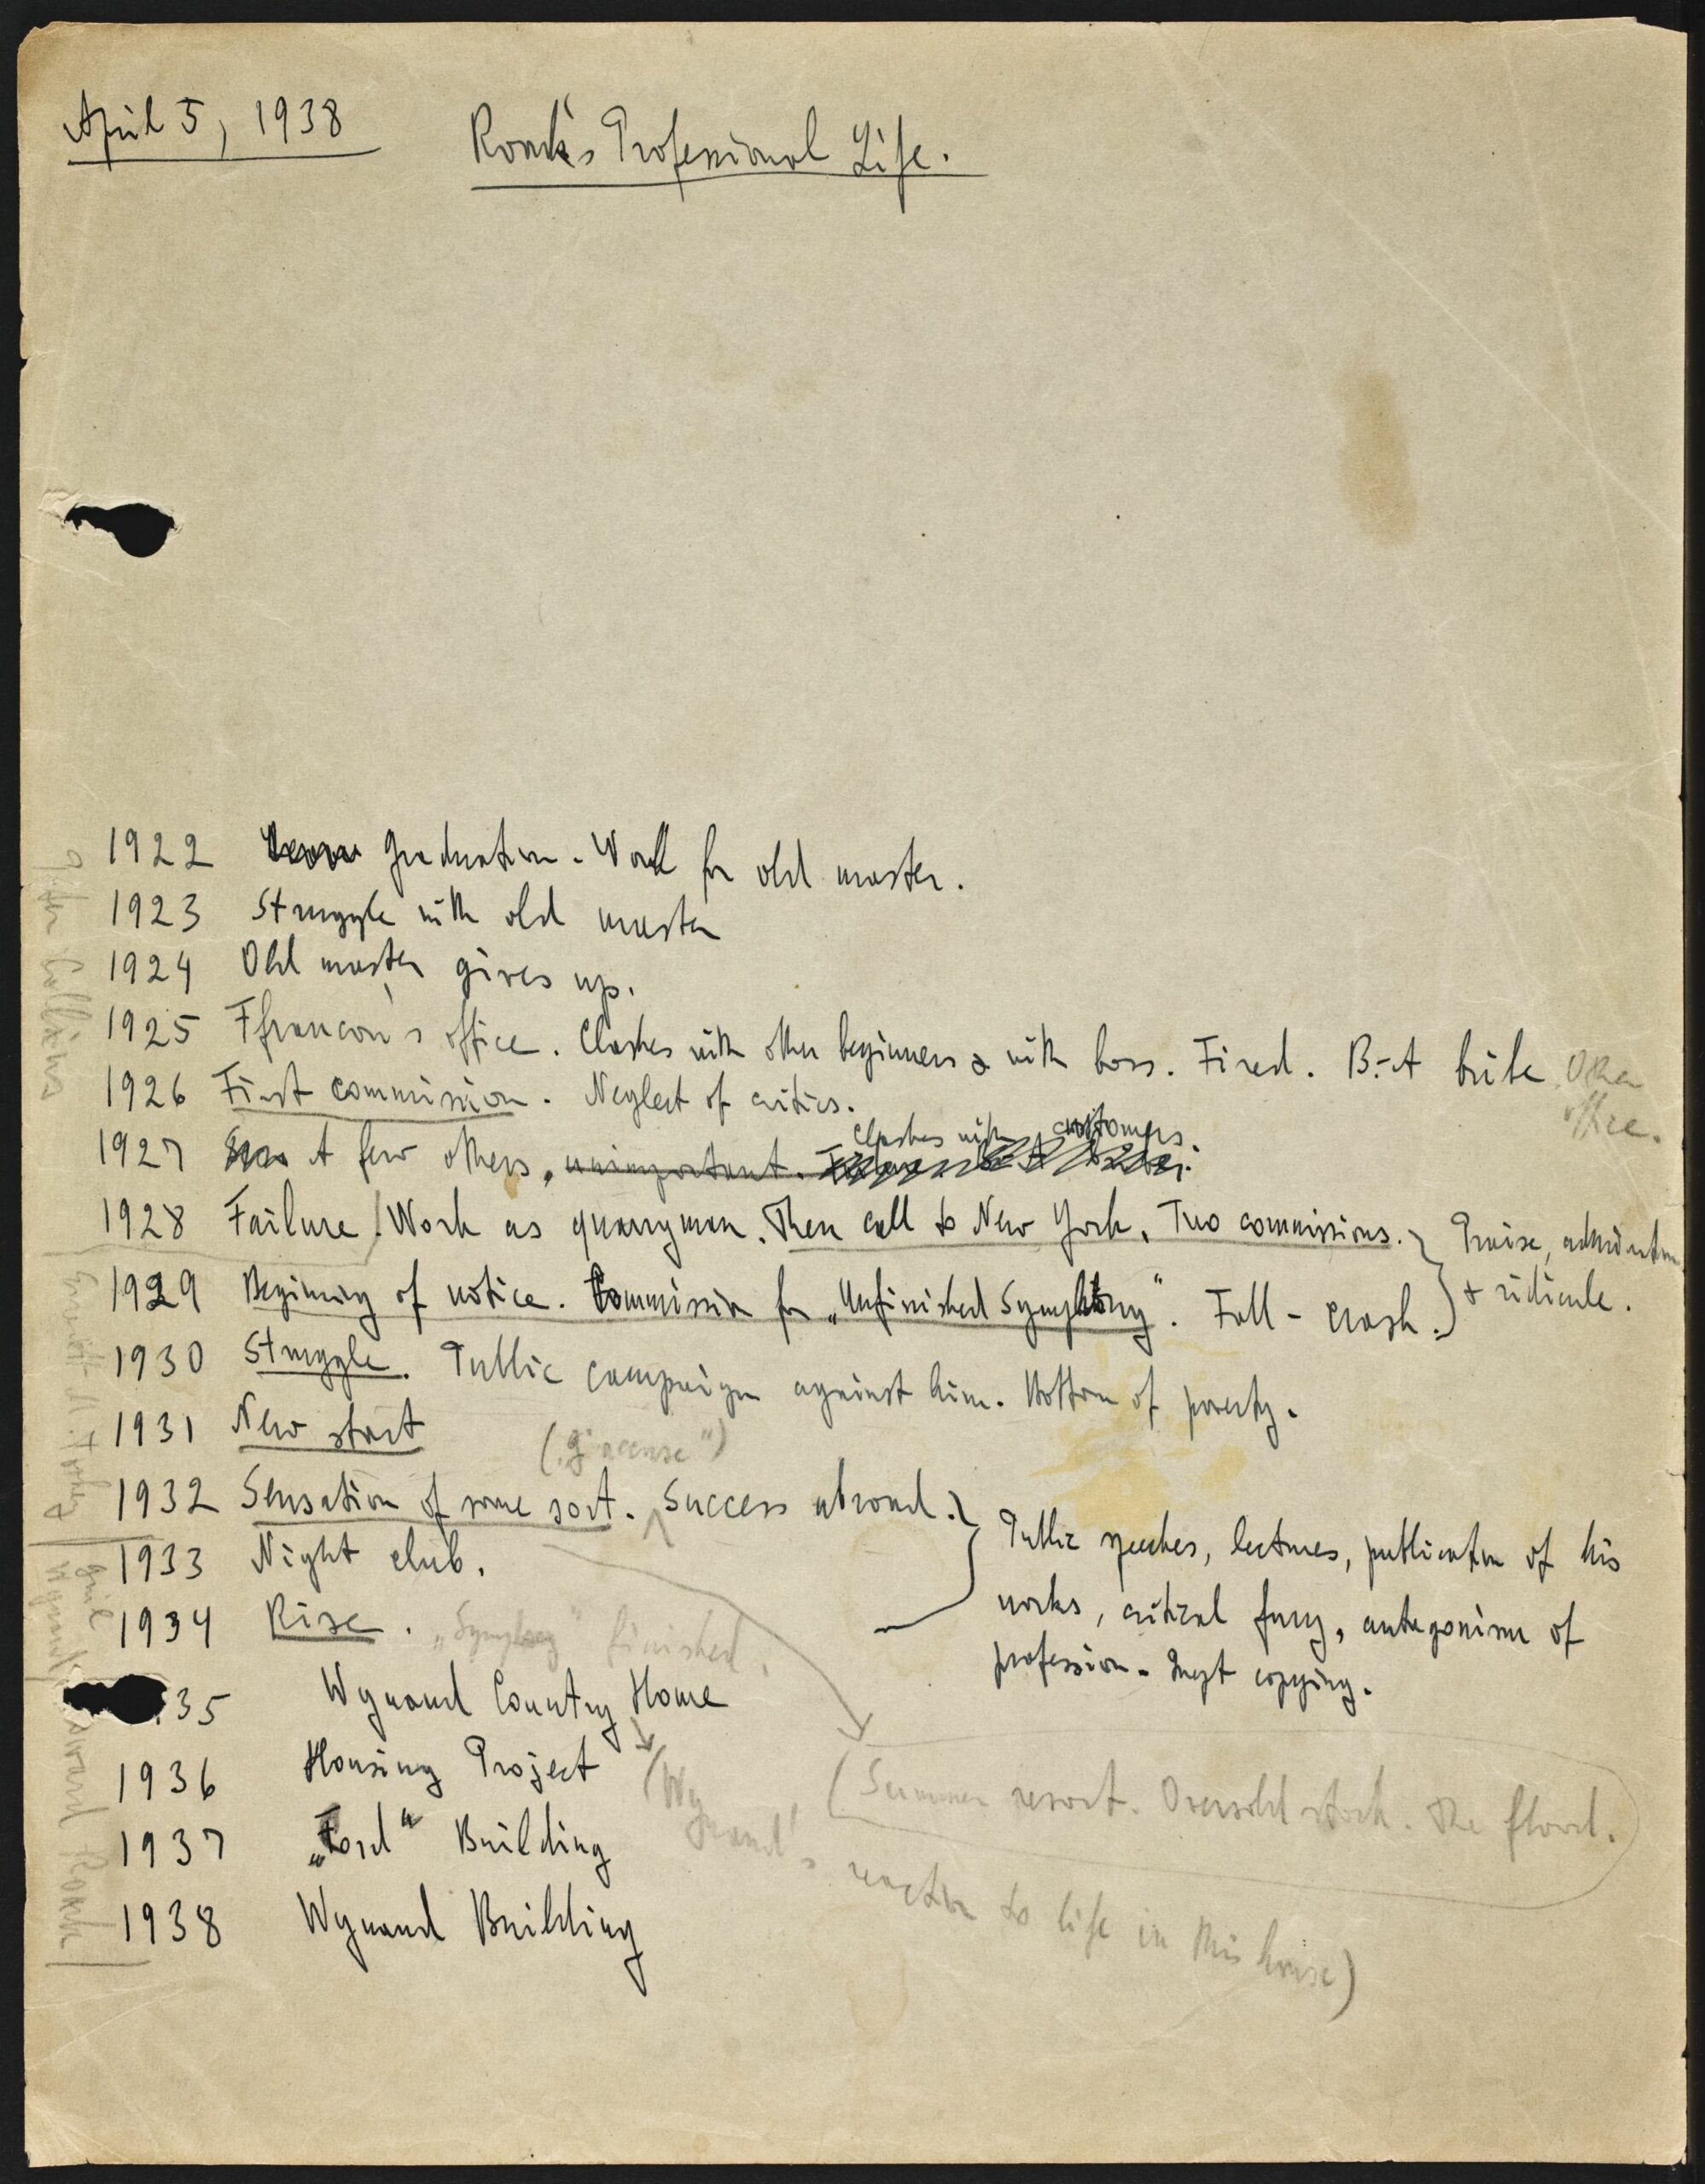 April 5, 1938
Roark's Professional Life.
1922 Graduation. Work for old master.
1923 Struggle with old master
1924 Old master gives up.
1925 Ffrancon's office. Clashes with other beginners & with boss. Fired. B.-A bribe. Other office.
1926 First commission. Neglect of critics.
1927 A few others, unimportant. clashes with customers.
1928 Failure. Work as quarryman. Then call to New York. Two commissions.
Praise, admiration
1929 Beginning of notice. Commission for „Unfinished Symphony". Fall - crash.
& ridicule.
1930 Struggle. Public campaign against him. Bottom of poverty.
1931 New start
("J'accuse")
1932 Sensation of some sort. Success abroad.
Public speeches, lectures, publication of his
works, critical fury, antagonism of
profession. Inept copying.
1933 Night club.
1934 Rise. „Symphony" finished.
35 Wynand Country Home
1936 Housing Project
(Wynand's reaction to life in this house)
(Summer resort. Oversold stock. The flood.)
1937 „Ford" Building
1938 Wynand Building
Peter Collins
Everett M. Flent
Gail Wynand
Howard Roark